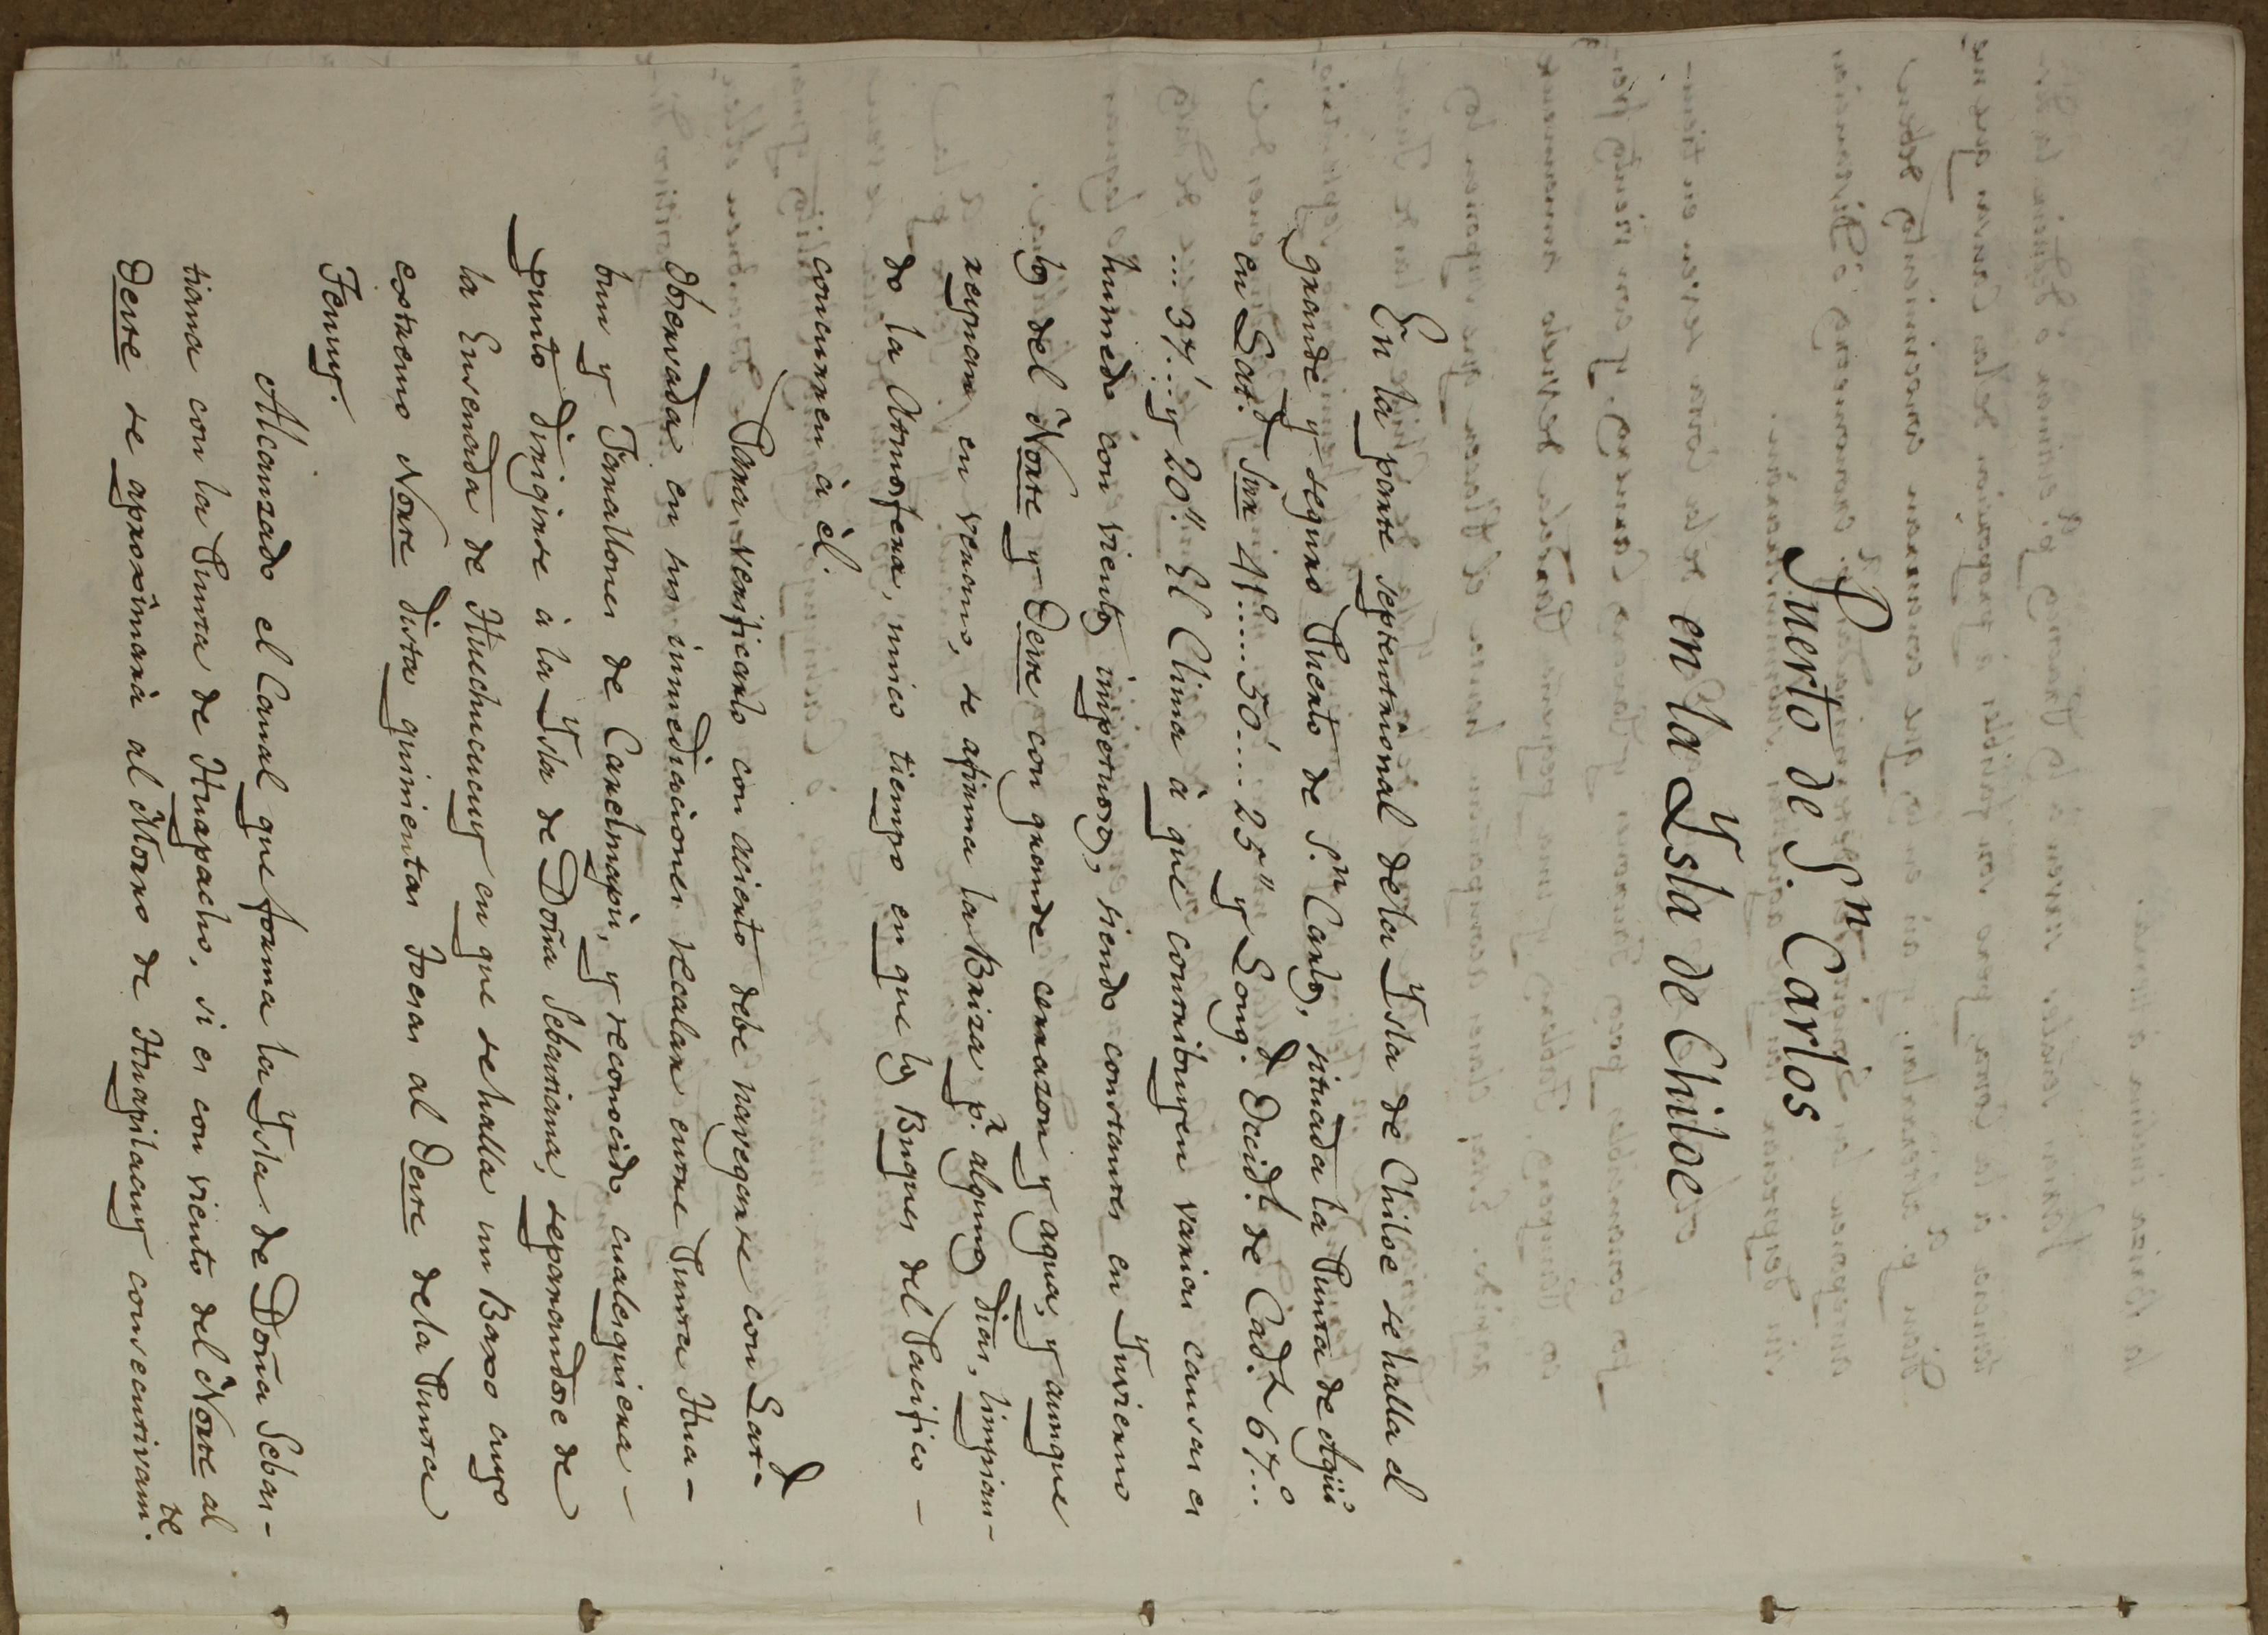 Puerto de S.n Carlos
en la Ysla de Chiloe
En la parte septentrional dela Ysla de Chiloe se halla el
grande y seguro Puerto de S.n Carlos, situada la Punta de Agüi
en Lat.d Sur 41º.....50'....25" y Long.d Occid.l de Cad.z 67º...
...37'...y 20". El Clima à que contribuyen varias causas es
humedo con vientos impetuosos, siendo constantes en Yvierno
los del Norte y Oeste con grande cerrazon y agua, y aunque
reynan en verano, se afirma la Briza p.r algunos dias, limpian-
do la Atmosfera, unico tiempo en que los Buques del Pacifico -
concurren à èl.
Para verificarlo con acierto debe navegarse con Lat.d
Observada en sus inmediaciones recalar entre Punta Hua-
bun y Farallones de Carelmapu, y reconocido cualesquiera -
punto dirigirse à la Ysla de Doña Sebastiana, separandose de
la Ensenada de Huechucucuy en que se halla un Baxo cuyo
extremo Norte dista quinientas toesas al Oeste dela Punta
Tenuy.
Alcanzado el Canal que forma la Ysla de Doña Sebas-
tiana con la Punta de Huapacho, si es con viento del Norte al
Oeste se aproximarà al Morro de Huapilacuy consecutivam.te